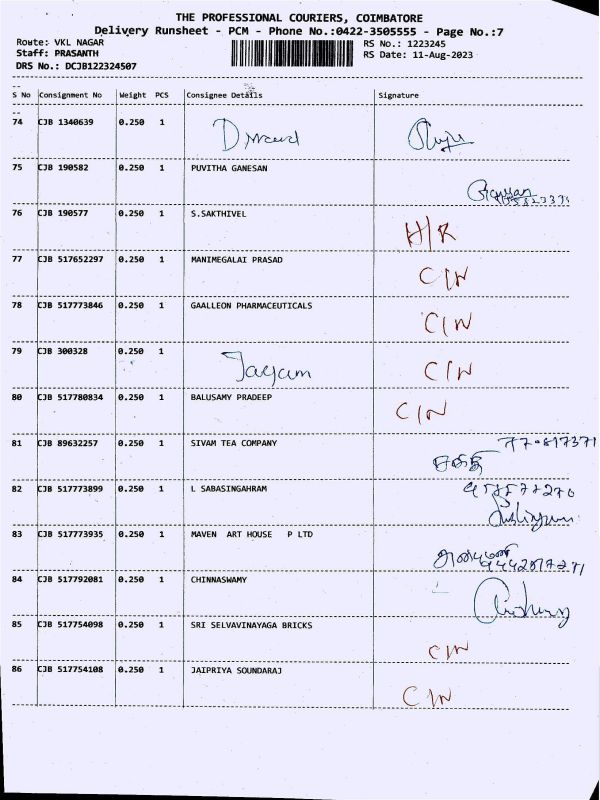 THE PROFESSIONAL COURIERS, COIMBATORE
Delivery Runsheet - PCM - Phone No.:0422-3505555 - Page No.:7
Route: VKL NAGAR RS No.: 1223245
Staff: PRASANTH RS Date: 11-Aug-2023
DRS No.: DCJB122324507
--
S No Consignment No Weight PCS Consignee Details Signature
--
74 CJB 1340639 0.250 1
75 CJB 190582 0.250 1 PUVITHA GANESAN
76 CJB 190577 0.250 1 S.SAKTHIVEL H/R
77 CJB 517652297 0.250 1 MANIMEGALAI PRASAD C/N
78 CJB 517773846 0.250 1 GAALLEON PHARMACEUTICALS C/N
79 CJB 300328 0.250 1 Jayam C/N
80 CJB 517780834 0.250 1 BALUSAMY PRADEEP C/N
81 CJB 89632257 0.250 1 SIVAM TEA COMPANY
82 CJB 517773899 0.250 1 L SABASINGAHRAM
83 CJB 517773935 0.250 1 MAVEN ART HOUSE P LTD
84 CJB 517792081 0.250 1 CHINNASWAMY
85 CJB 517754098 0.250 1 SRI SELVAVINAYAGA BRICKS C/N
86 CJB 517754108 0.250 1 JAIPRIYA SOUNDARAJ C/N